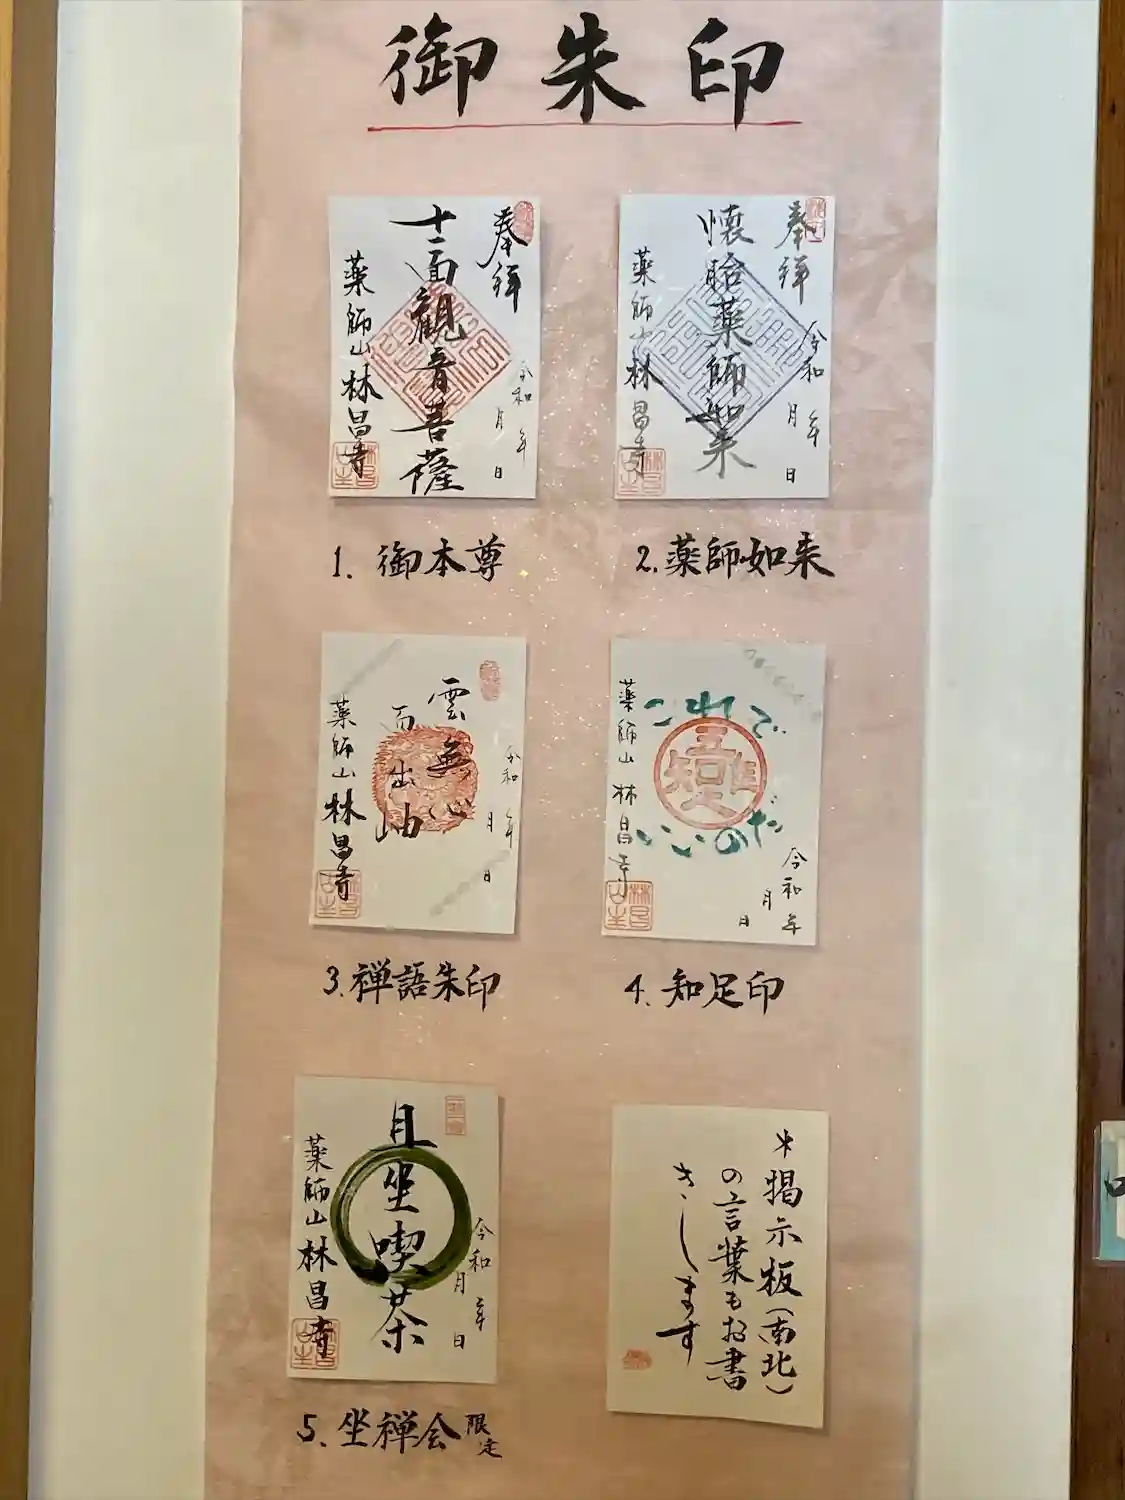 御朱印
奉拝
十一面観音菩薩
令和 年
月 日
薬師山林昌寺
1. 御本尊
奉拝
懐胎薬師如来
令和 年
月 日
薬師山林昌寺
2. 薬師如来
雲無心
而出岫
令和 年
月
日
薬師山林昌寺
3. 禅語朱印
これで
いいのだ
吾唯足知
令和 年
月
日
薬師山林昌寺
4. 知足印
且坐喫茶
令和 年
月 日
薬師山林昌寺
5. 坐禅会限定
*掲示板(南北)
の言葉もお書
きします